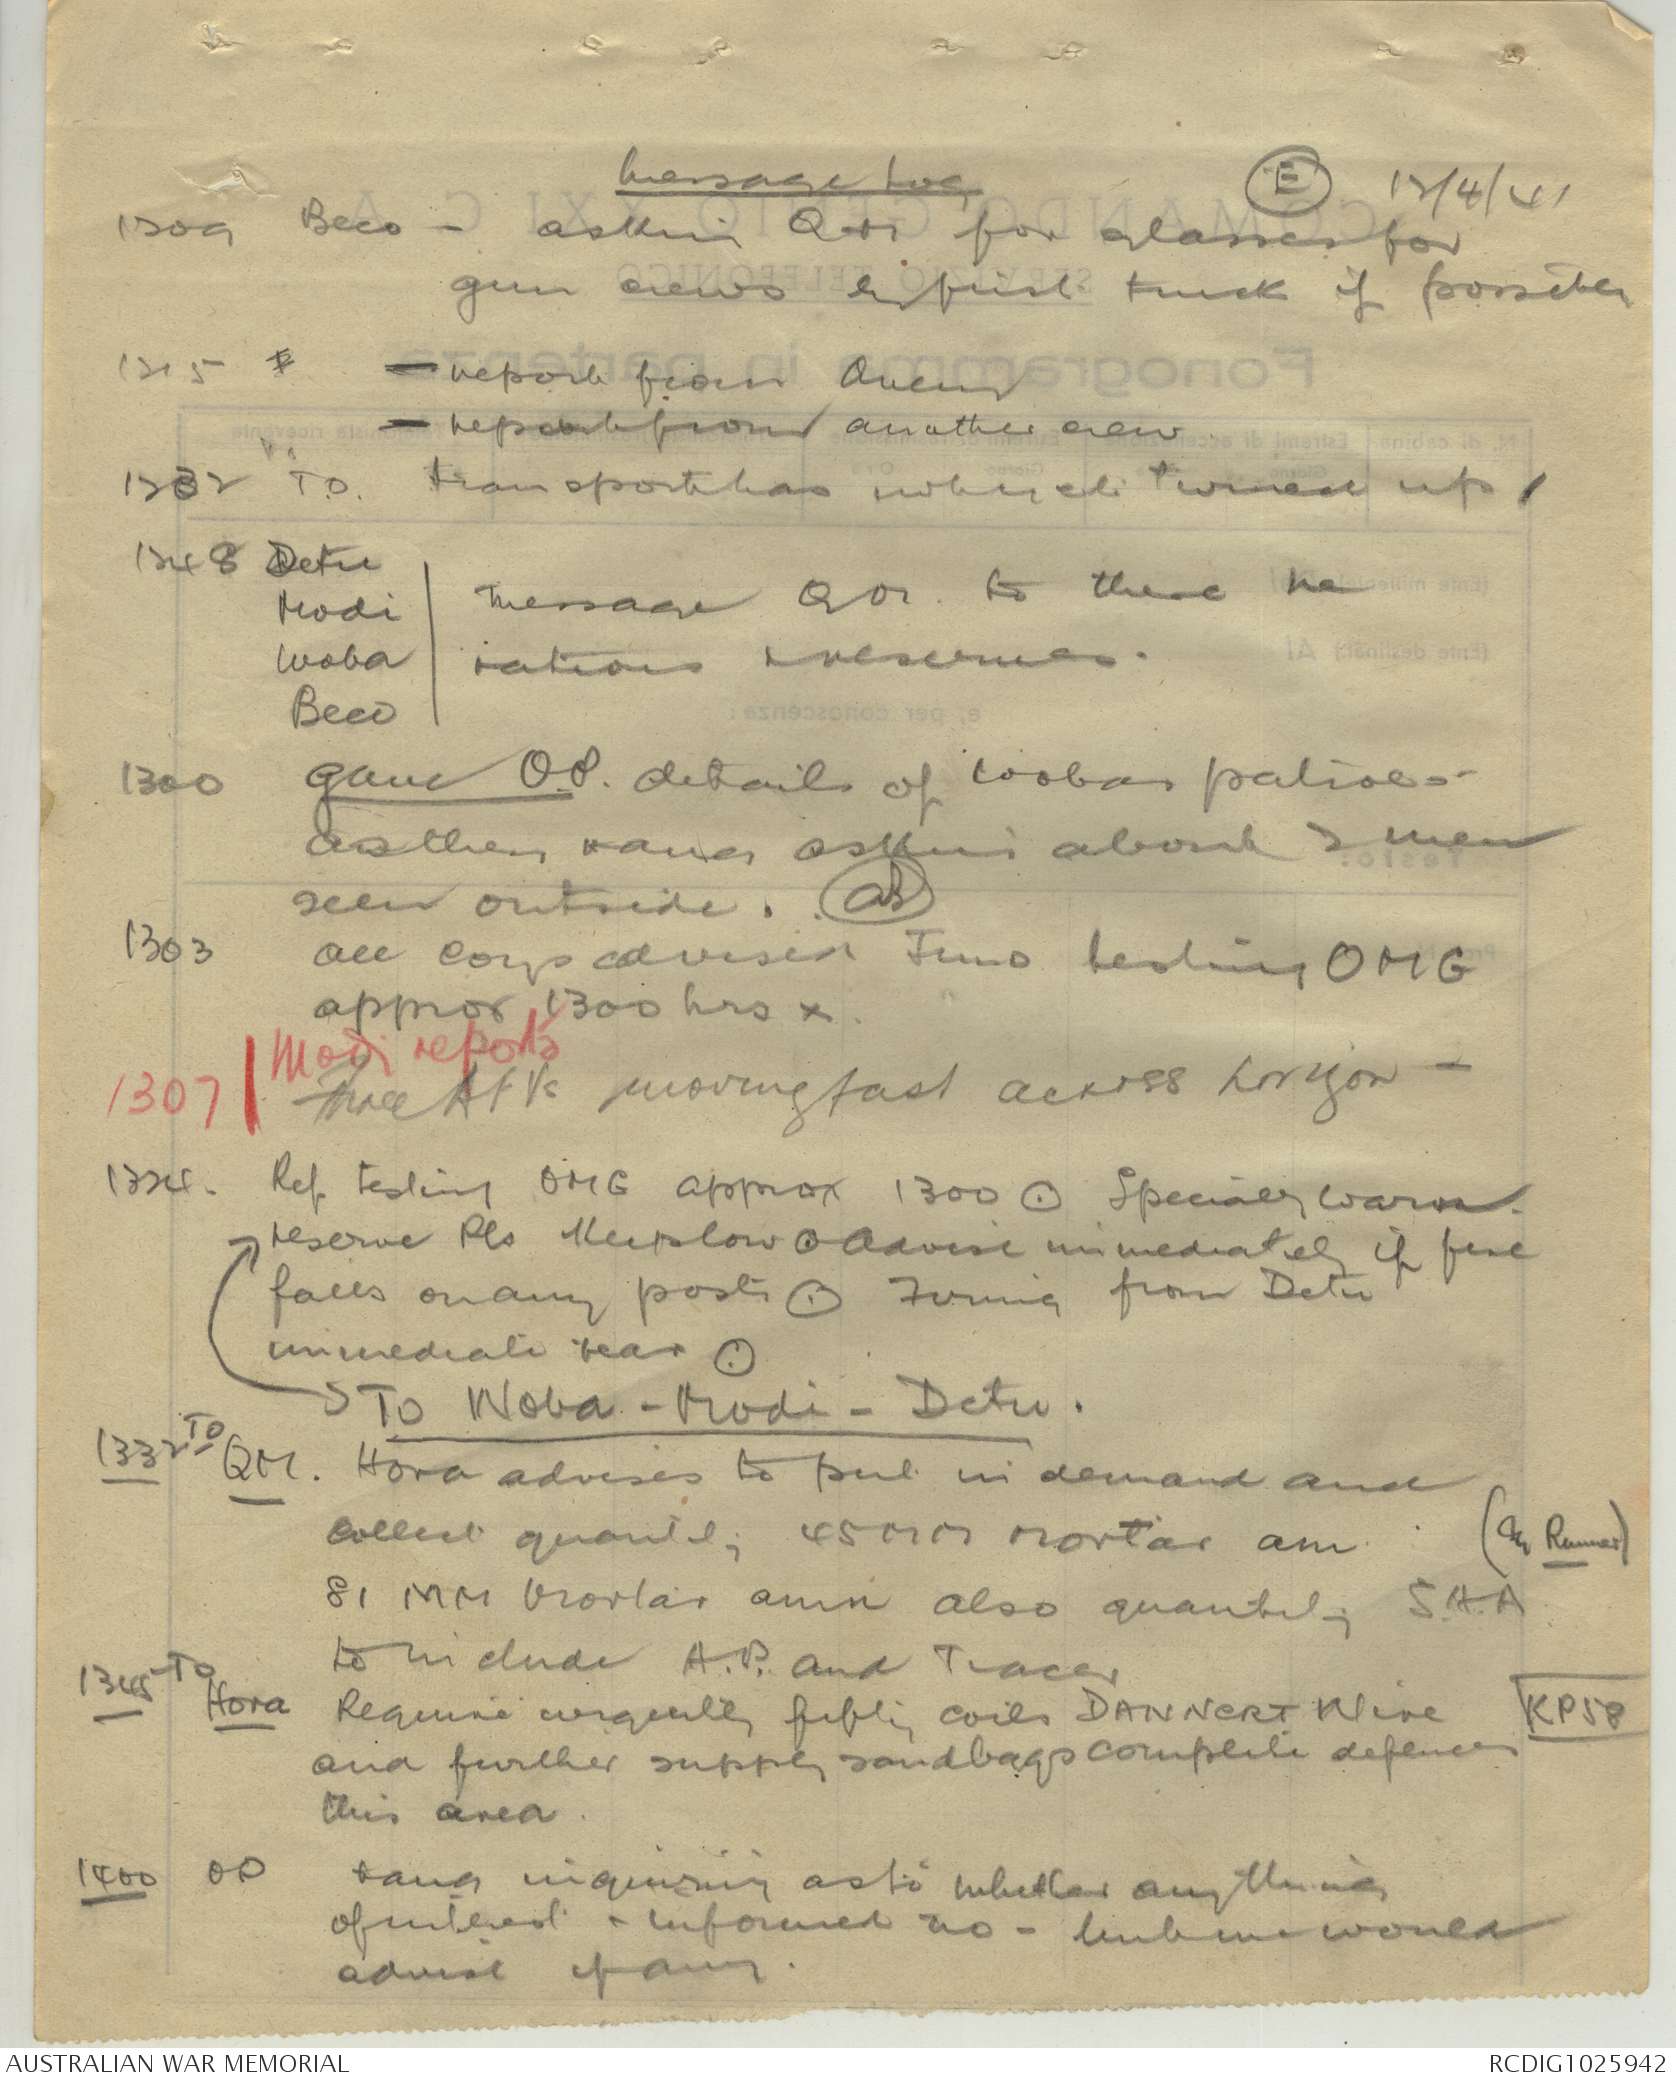 Message Log (E) 12/4/41
1209 Beco - asking QM for glasses for
gun crews by first truck if possible
1215 - report from
- report from another crew
1232 " TO. transport has not yet turned up
1248 Detu
Modi message QM. to these re
Woba rations & reserves.
Beco
1300 gave O.P. details of Wobas patrols
as they rang asking about 2 men
seen outside.
1303 all coys advised Juno testing OMG
approx 1300 hrs x.
Modi reports
1307 Three AFVs moving fast across horizon -
1324. Ref testing OMG approx 1300 ⊙ Specially warn
reserve Pls keep low ⊙ Advise immediately if fire
falls on any posts ⊙ Firing from Detu
immediate rear ⊙
To Woba - Modi - Detu.
1332 TO QM. Hora advises to put in demand and
collect quantity 45 MM Mortar am (by Runner)
81 MM Mortar amn also quantity S.A.A
to include A.P. and Tracer
1345 TO Hora Require urgently fifty coils DANNERT Wire KP58
and further supply sandbags complete defences
this area.
1400 OP rang inquiring as to whether anything
of interest - informed no - but we would
advise if any.
COMANDO GENIO XXI C. A.
SERVIZIO TELEFONICO
Fonogramma in partenza
e, per conoscenza:
Testo:
AUSTRALIAN WAR MEMORIAL RCDIG1025942